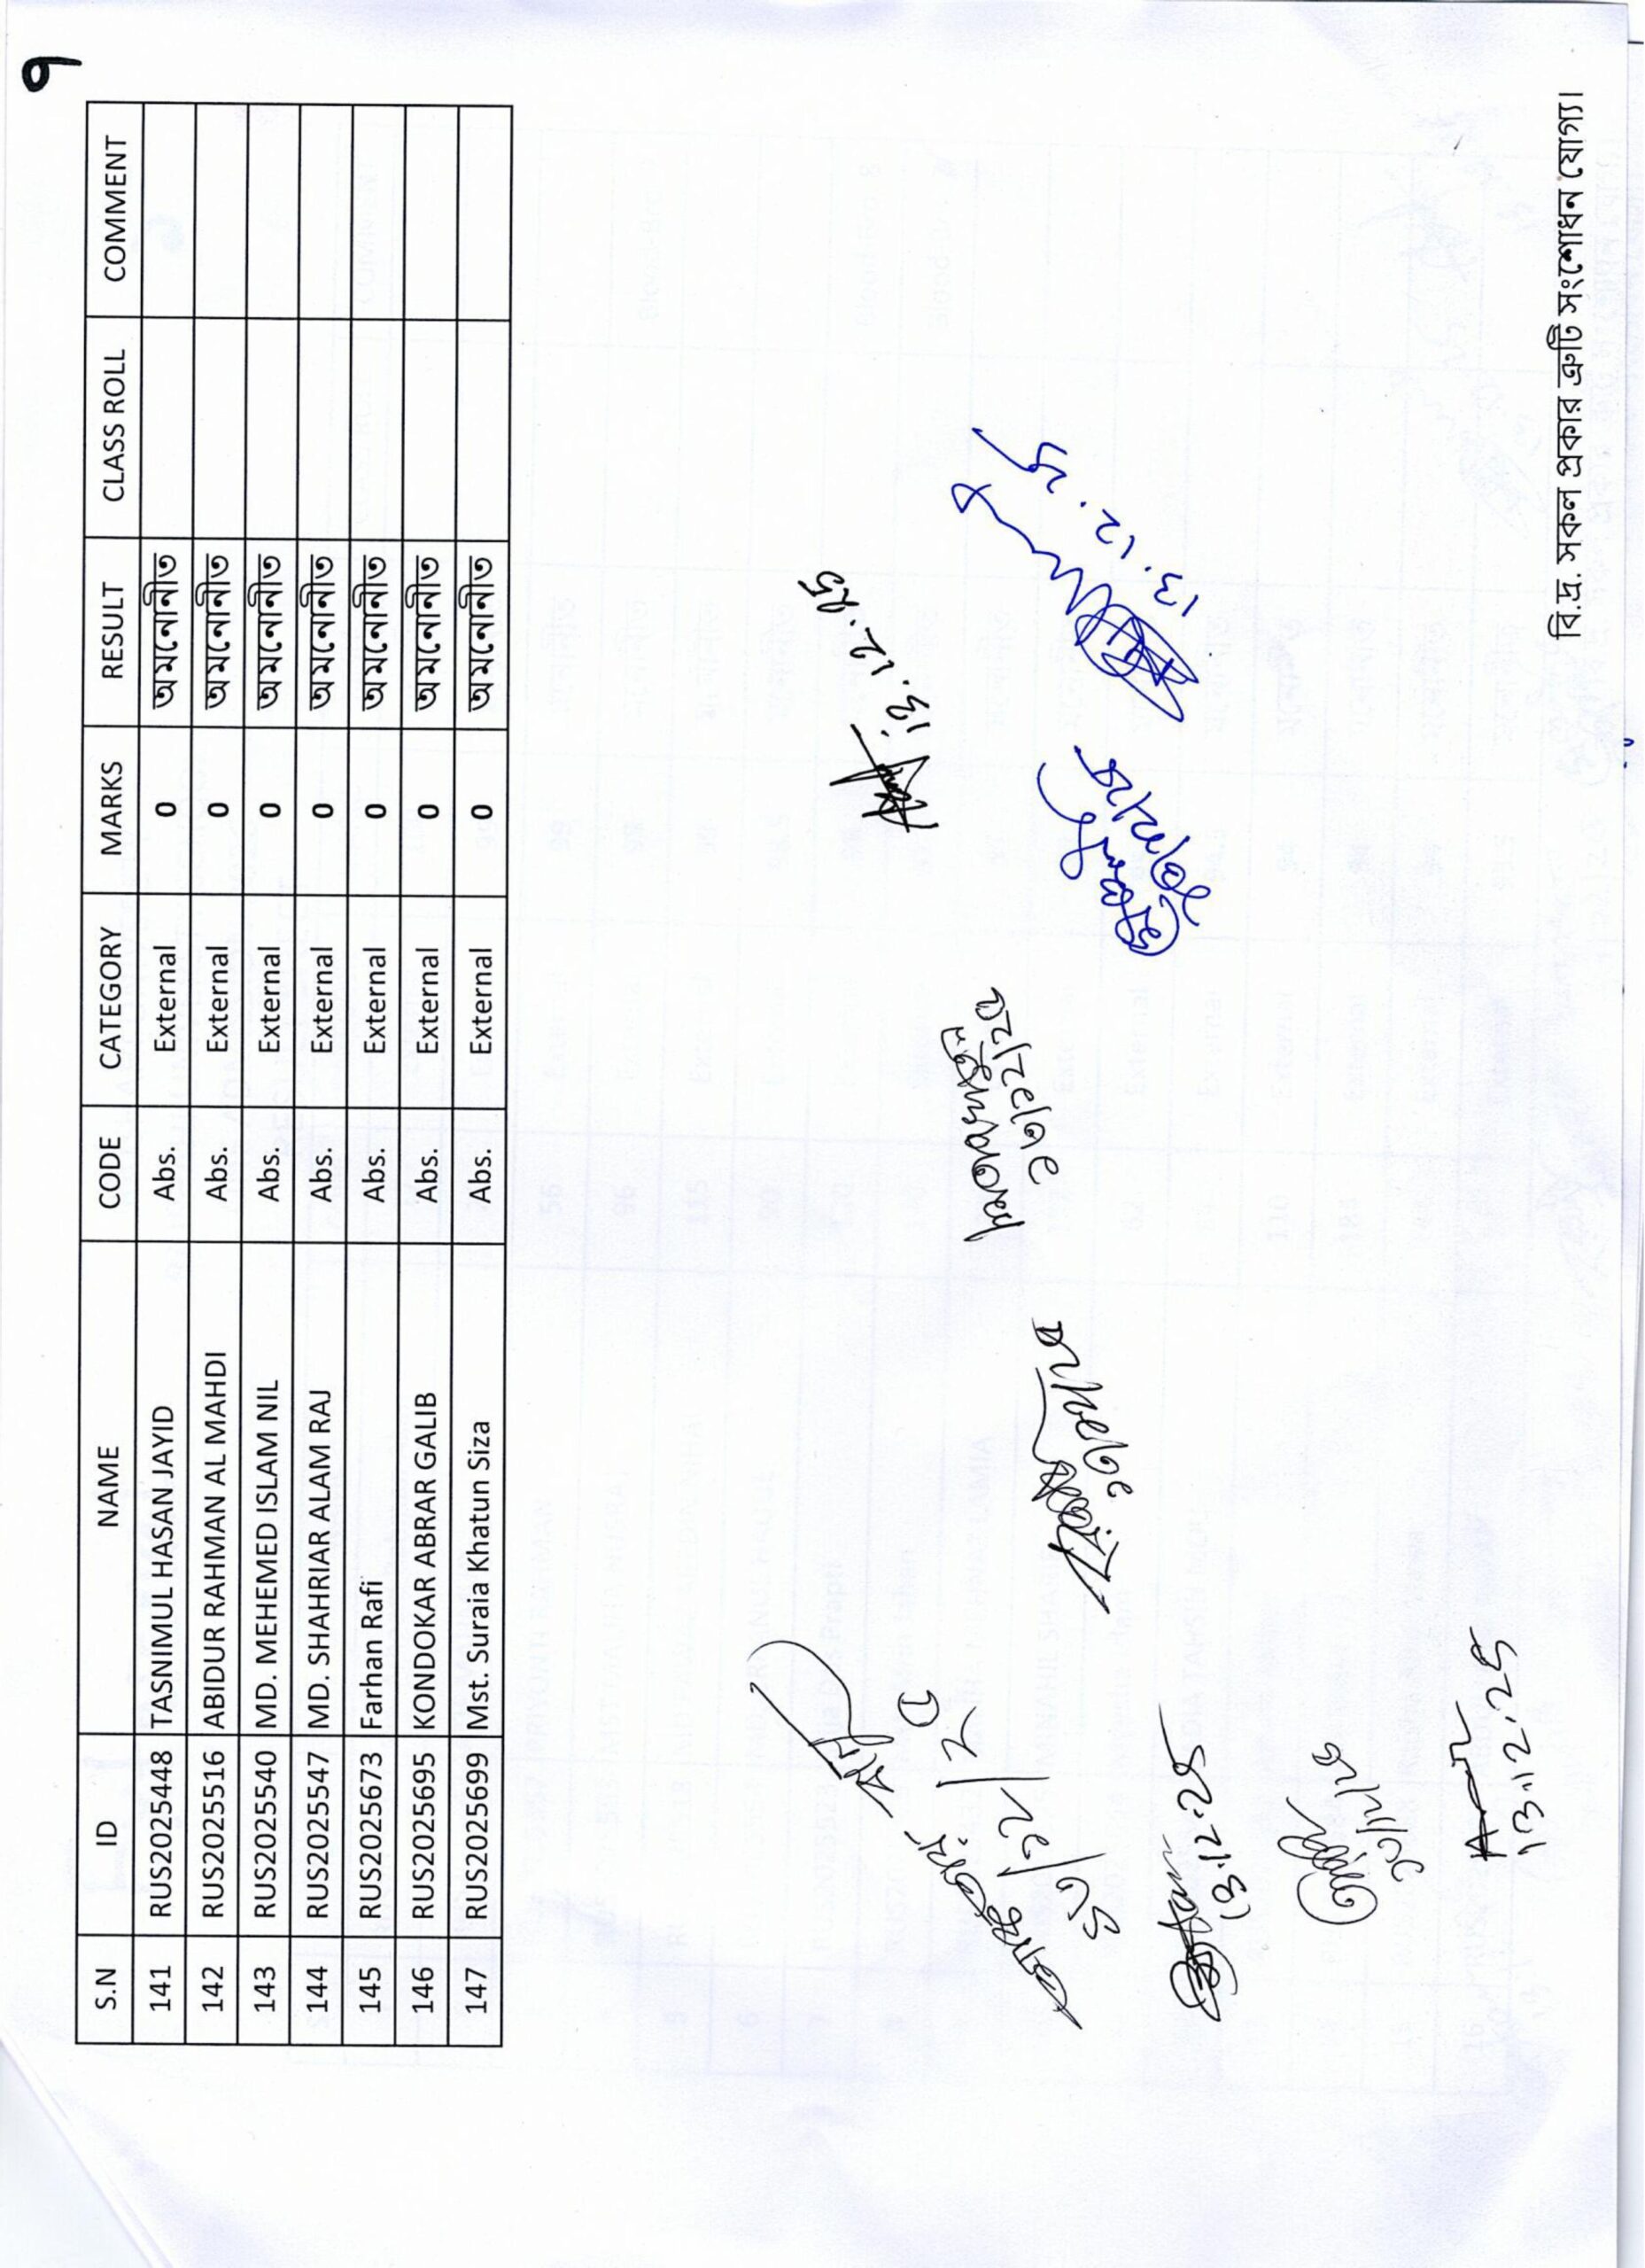 ৭
S.N ID NAME CODE CATEGORY MARKS RESULT CLASS ROLL COMMENT
141 RUS2025448 TASNIMUL HASAN JAYID Abs. External 0 অমনোনীত
142 RUS2025516 ABIDUR RAHMAN AL MAHDI Abs. External 0 অমনোনীত
143 RUS2025540 MD. MEHEMED ISLAM NIL Abs. External 0 অমনোনীত
144 RUS2025547 MD. SHAHRIAR ALAM RAJ Abs. External 0 অমনোনীত
145 RUS2025673 Farhan Rafi Abs. External 0 অমনোনীত
146 RUS2025695 KONDOKAR ABRAR GALIB Abs. External 0 অমনোনীত
147 RUS2025699 Mst. Suraia Khatun Siza Abs. External 0 অমনোনীত
13.12.25
13.12.25
13.12.25
13.12.25
বি.দ্র. সকল প্রকার ত্রুটি সংশোধন যোগ্য।